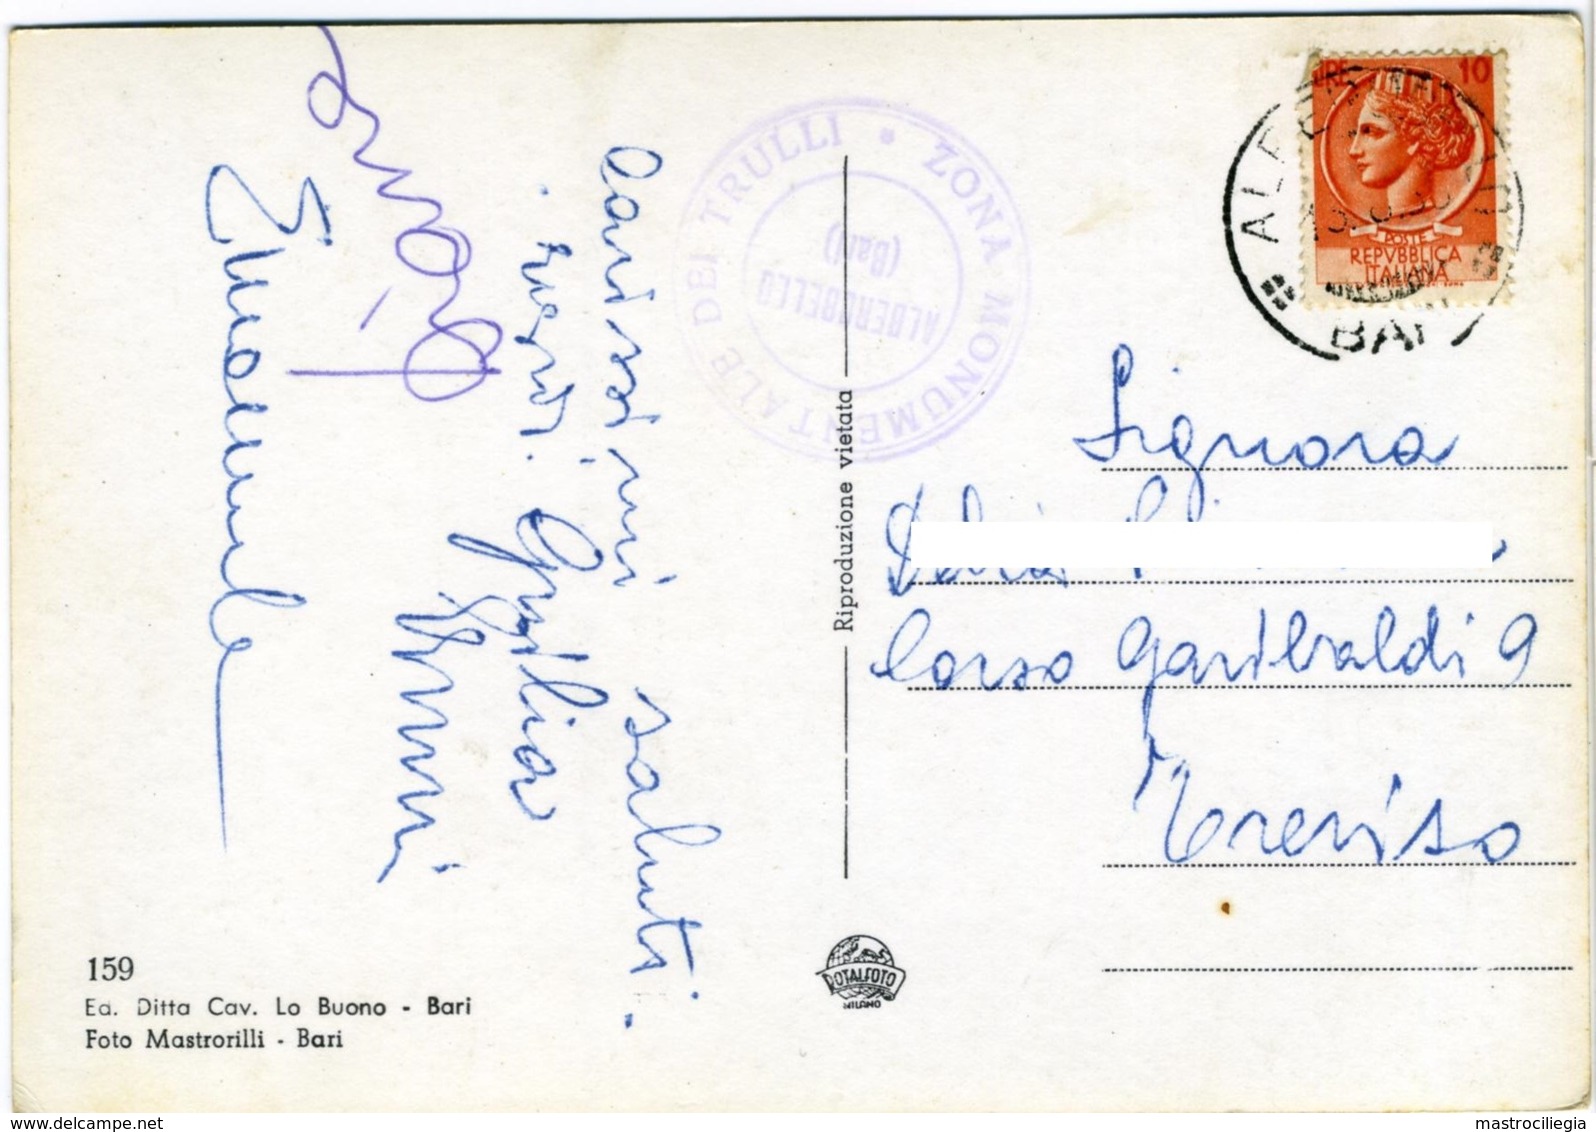 Carissimi saluti.
Giulia
Emanuele
ZONA MONUMENTALE DEI TRULLI
ALBEROBELLO
(Bari)
LIRE 10
POSTE
REPVBBLICA
ITALIANA
BARI
Riproduzione vietata
Signora
Corso Garibaldi 9
Treviso
159
Ed. Ditta Cav. Lo Buono - Bari
Foto Mastrorilli - Bari
ROTALFOTO
MILANO
www.delcampe.net
mastrociliegia